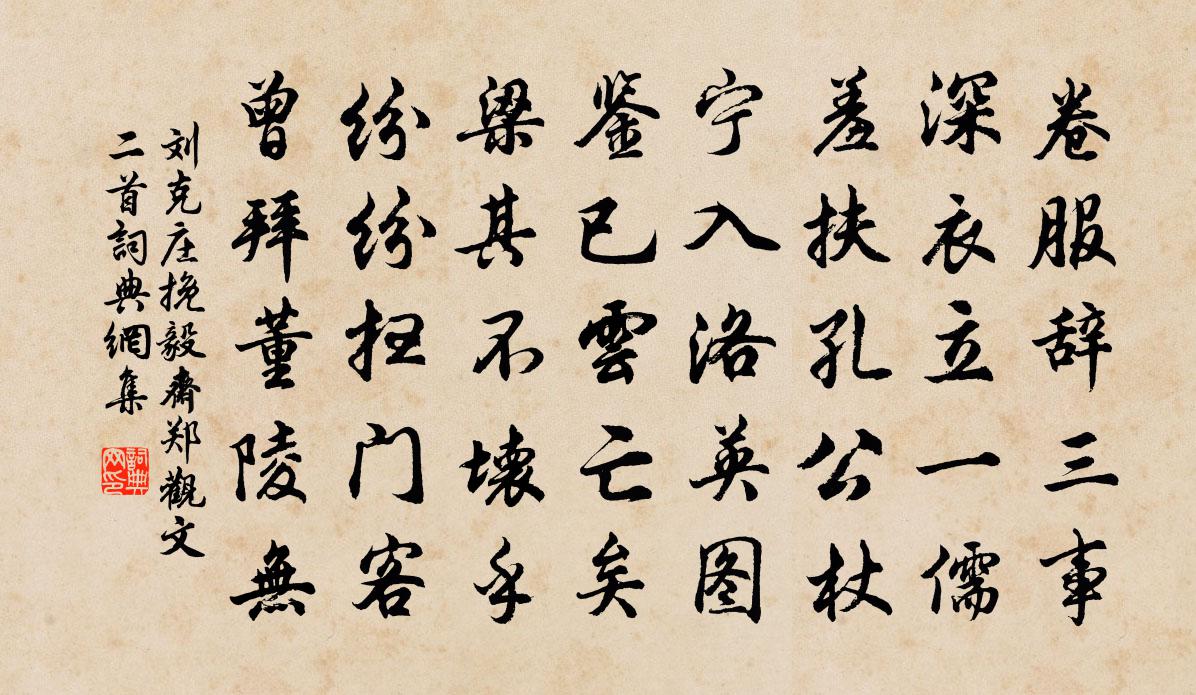 卷服辞三事
深衣立一儒
羞扶孔公杖
宁入洛英图
鉴已雲亡矣
梁其不壊乎
纷纷扫门客
曾拜董陵無
刘克庄挽毅斎郑觀文
二首詞典網集
詞典网印